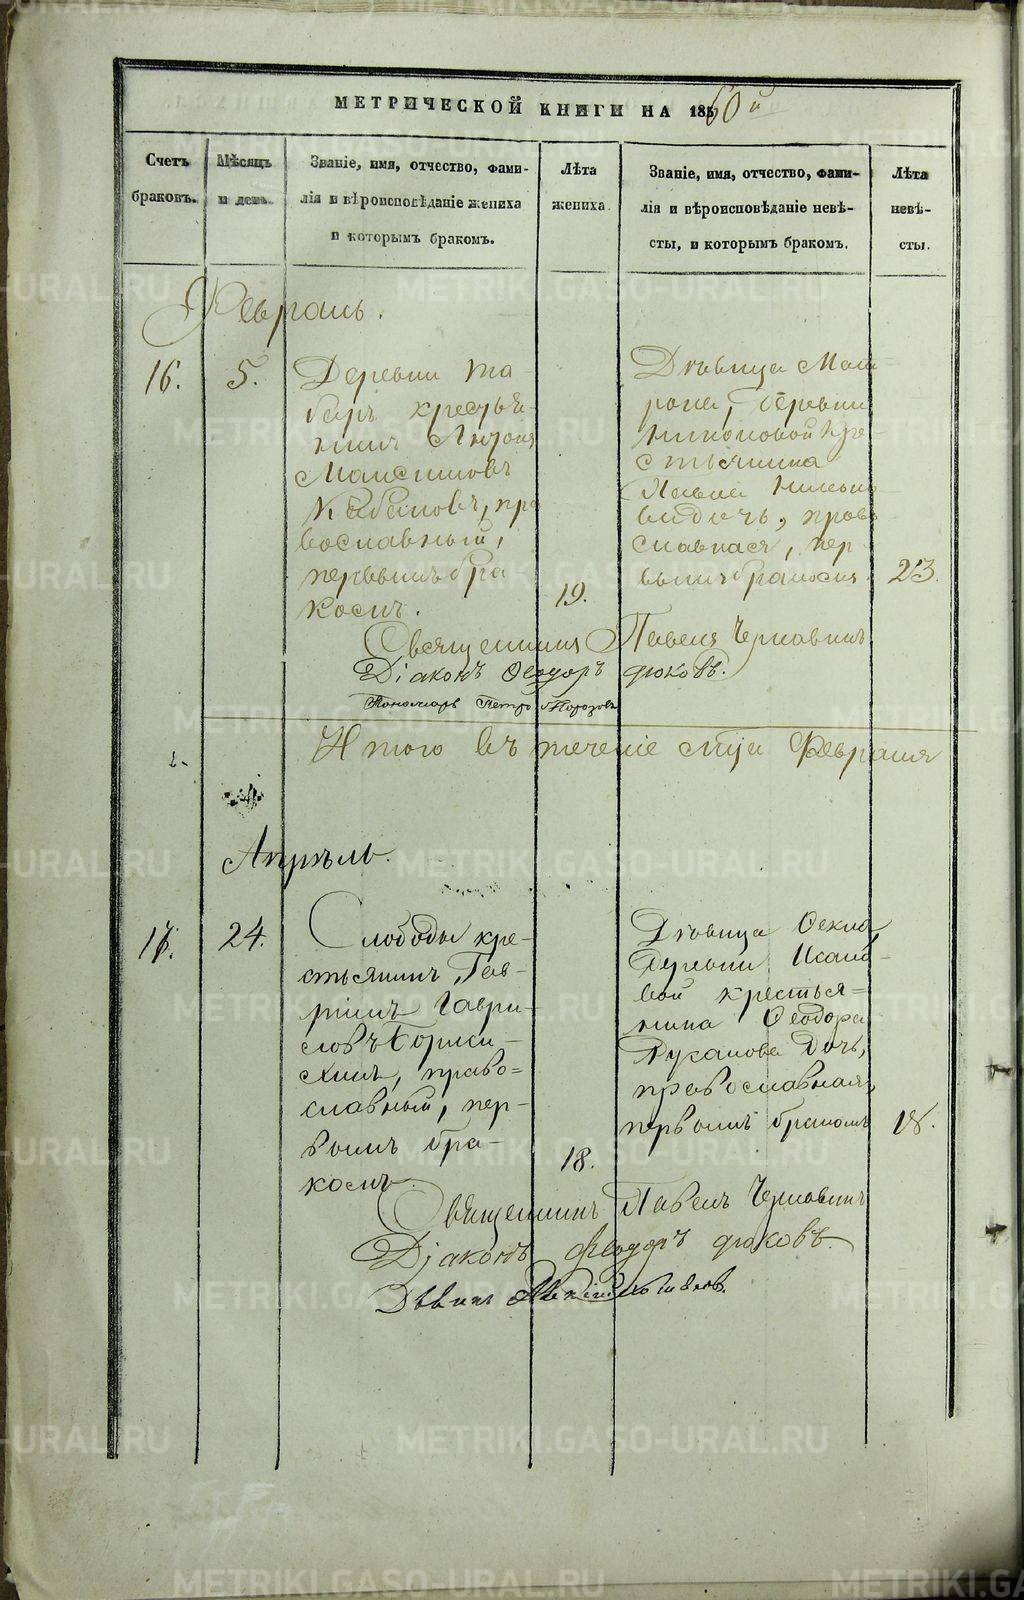 МЕТРИЧЕСКОЙ КНИГИ НА 1860й
Счетъ браковъ.
Мѣсяцъ и день.
Званіе, имя, отчество, фами-
лія и вѣроисповѣданіе жениха
и которымъ бракомъ.
Лѣта
жениха.
Званіе, имя, отчество, фами-
лія и вѣроисповѣданіе невѣ-
сты, и которымъ бракомъ.
Лѣта
невѣ-
сты.
Февраль.
16.
5.
Деревни Та-
баръ крестья-
нинъ
Максимовъ
пра
вославный,
первымъ бра
комъ.
19.
Дѣвица Мат-
рона, деревни
кре-
стьянина
Павла
право
славная, пер-
вымъ бракомъ
23.
Священникъ Павелъ Чернавинъ
Діаконъ Ѳеодоръ Дюковъ.
Пономарь Петръ Морозовъ
Итого въ теченіе м-ца Февраля
2-
Апрѣль.
17.
24.
Слободы кре-
стьянинъ, Гав-
ріилъ Гаври-
ловъ
право-
славный, пер-
вымъ бра-
комъ.
18.
Дѣвица Ѳекла,
деревни Исако-
вой крестья-
нина Ѳеодора
дочь,
православная,
первымъ бракомъ
18.
Священникъ Павелъ Чернавинъ
Діаконъ Ѳеодоръ Дюковъ.
METRIKI.GASO-URAL.RU